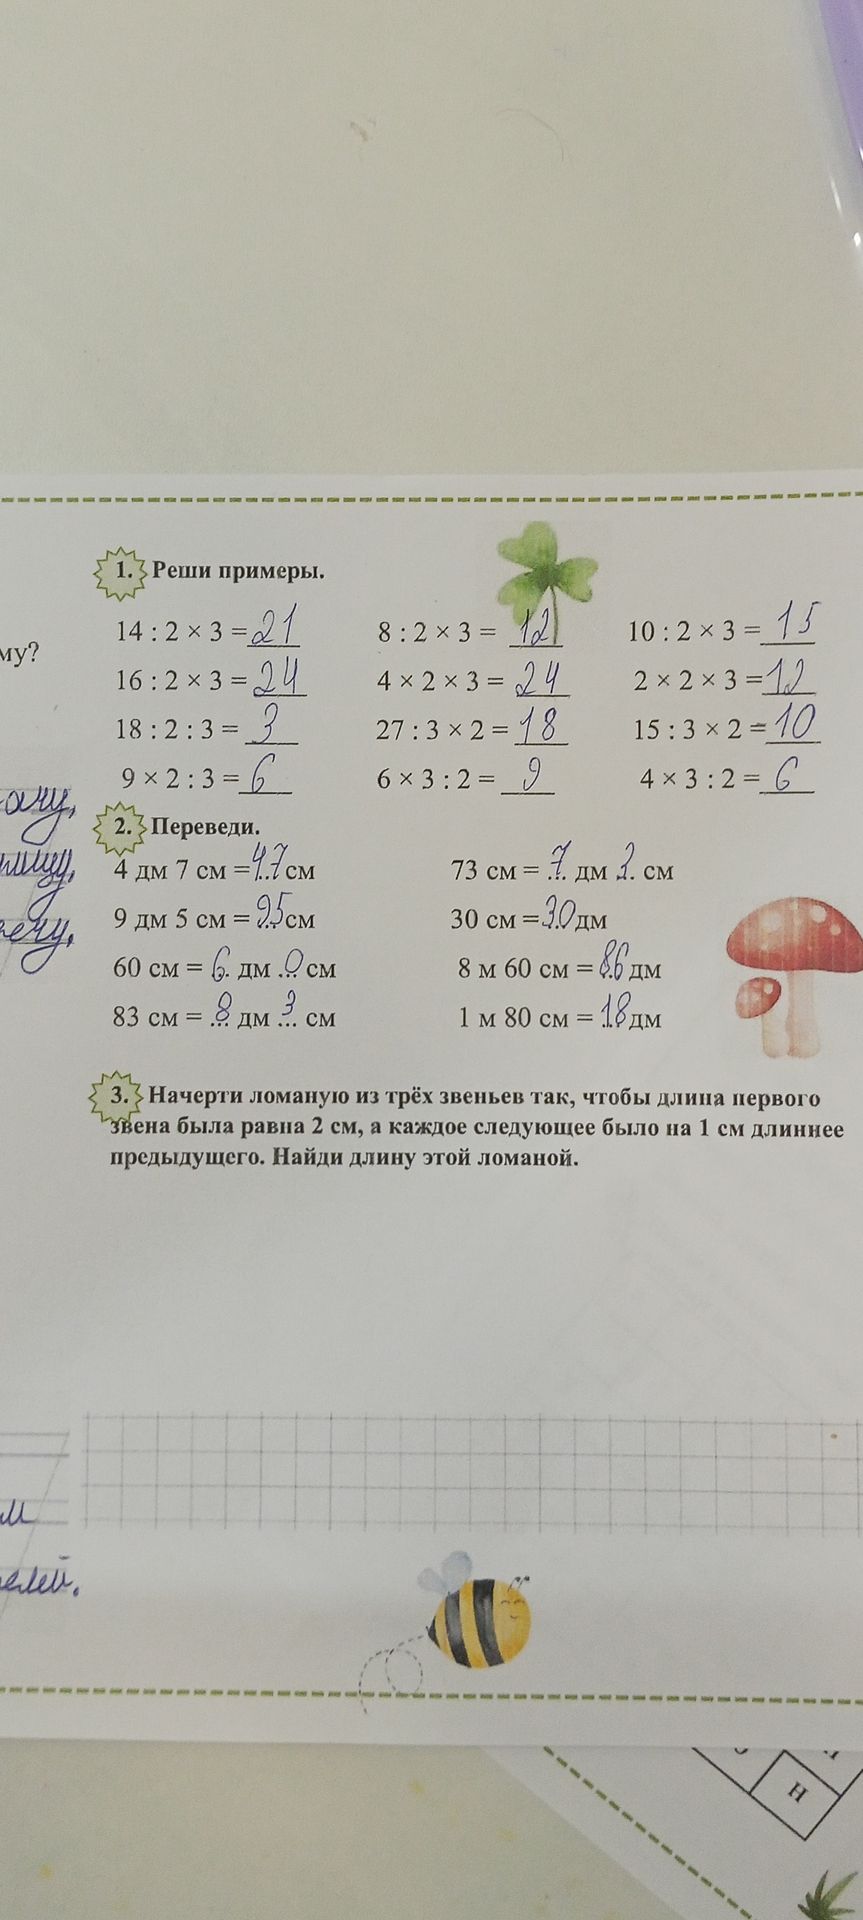 му?
ачу,
лицу,
ечу,
м
елей.
1. Реши примеры.
14 : 2 × 3 = 21 8 : 2 × 3 = 12 10 : 2 × 3 = 15
16 : 2 × 3 = 24 4 × 2 × 3 = 24 2 × 2 × 3 = 12
18 : 2 : 3 = 3 27 : 3 × 2 = 18 15 : 3 × 2 = 10
9 × 2 : 3 = 6 6 × 3 : 2 = 9 4 × 3 : 2 = 6
2. Переведи.
4 дм 7 см = 47 см 73 см = 7 дм 3 см
9 дм 5 см = 95 см 30 см = 30 дм
60 см = 6 дм 0 см 8 м 60 см = 86 дм
83 см = 8 дм 3 см 1 м 80 см = 18 дм
3. Начерти ломаную из трёх звеньев так, чтобы длина первого
звена была равна 2 см, а каждое следующее было на 1 см длиннее
предыдущего. Найди длину этой ломаной.
Н